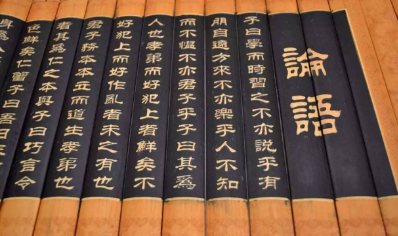 論語
子曰學而時習之不亦說乎有
朋自遠方來不亦樂乎人不知
而不慍不亦君子乎子曰其爲
人也孝弟而好犯上者鮮矣不
好犯上而好作亂者未之有也
君子務本本立而道生孝弟也
者其爲仁之本與子曰巧言令
色鮮矣仁曾子曰吾日